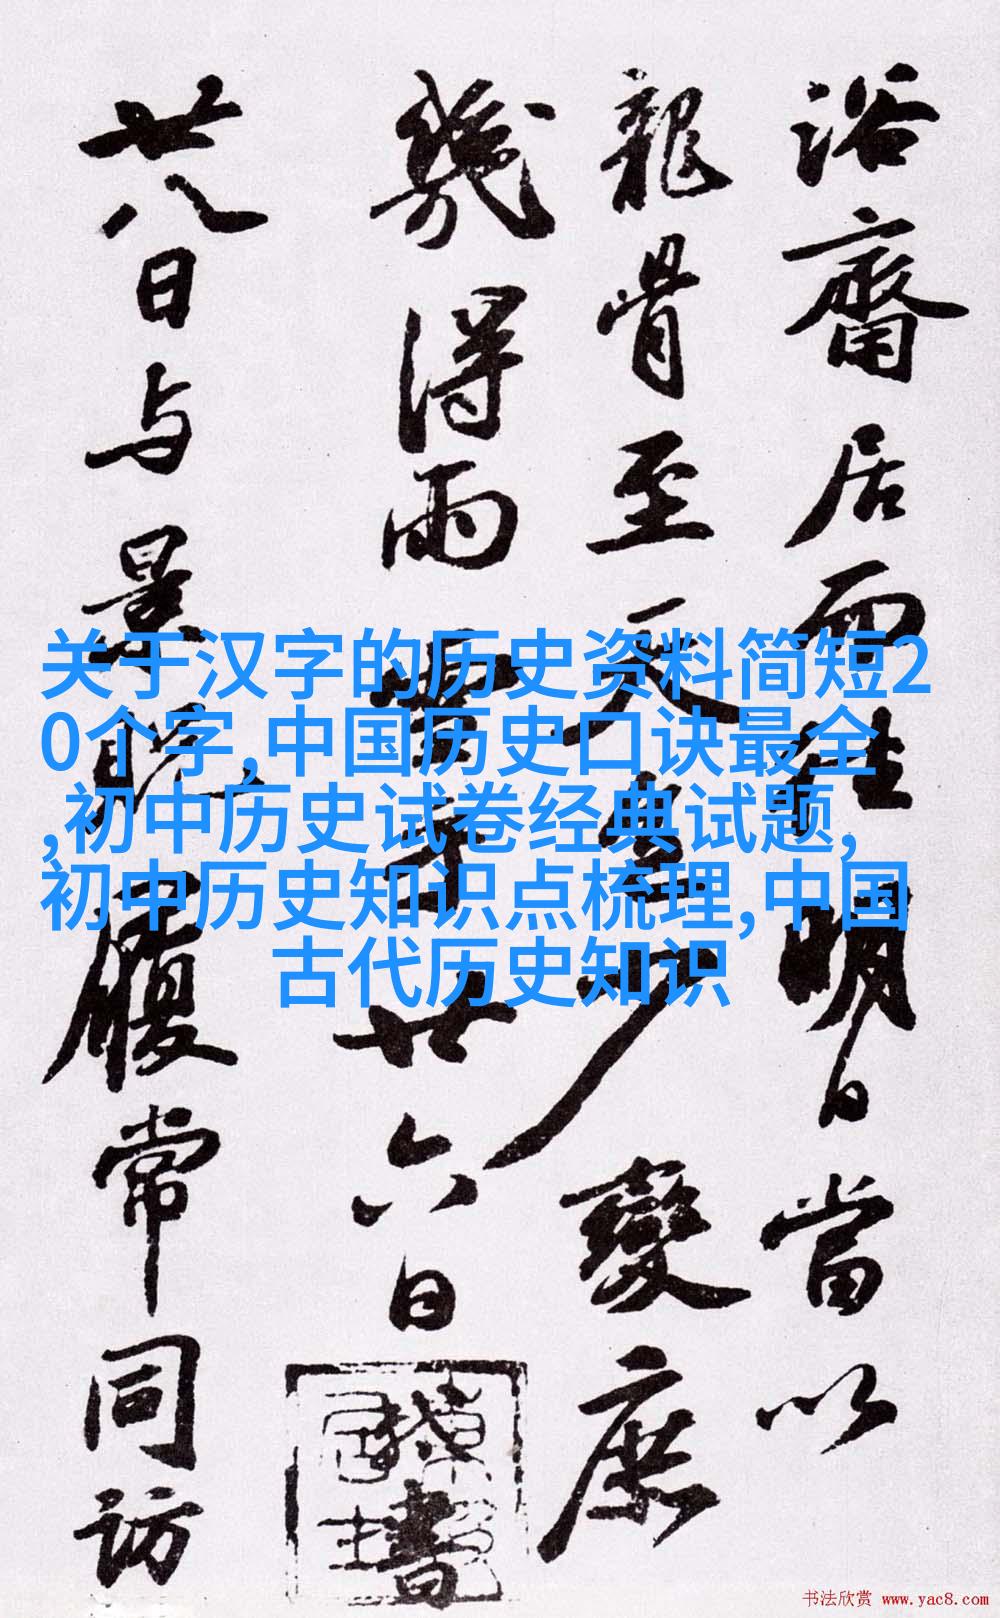 浴齋居而往明日當以
龍骨至天色少變庶
幾得雨雪乎廿六日書
廿八日与景貺履常同訪
关于汉字的历史资料简短2
0个字,中国历史口诀最全
,初中历史试卷经典试题,
初中历史知识点梳理,中国
古代历史知识
书法欣赏 www.yac8.com